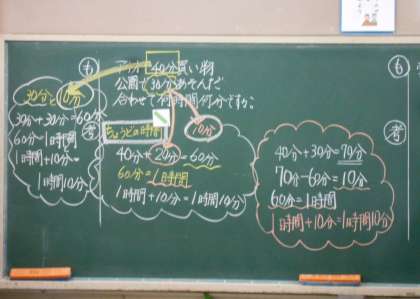 も
40分買い物
公園で30分あそんだ
合わせて何時間何分ですか。
30分と10分
30分+30分=60分
60分=1時間
1時間+10分=
1時間10分
考
ちょうどの時間
10分
40分+20分=60分
60分=1時間
1時間+10分=1時間10分
も
考
40分+30分=70分
70分-60分=10分
60分=1時間
1時間+10分=1時間10分